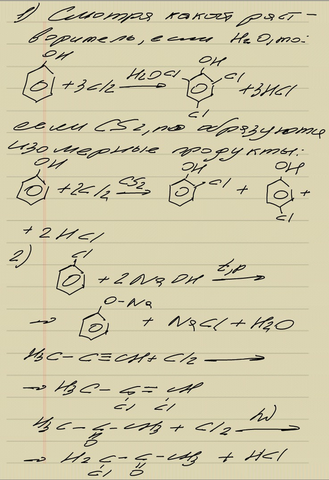 1) Смотря какой раст-
воритель, если H2O, то:
OH OH
+ 3Cl2 H2O Cl Cl + 3HCl
Cl
если CS2, то образуются
изомерные продукты:
OH OH OH
+ 2Cl2 CS2 Cl + +
Cl
+ 2HCl
2) Cl
+ 2NaOH t,p
O-Na
+ NaCl + H2O
H3C-C≡CH + Cl2
H3C-C=CH
Cl Cl
H3C-C-CH3 + Cl2 hν
O
H2C-C-CH3 + HCl
Cl O